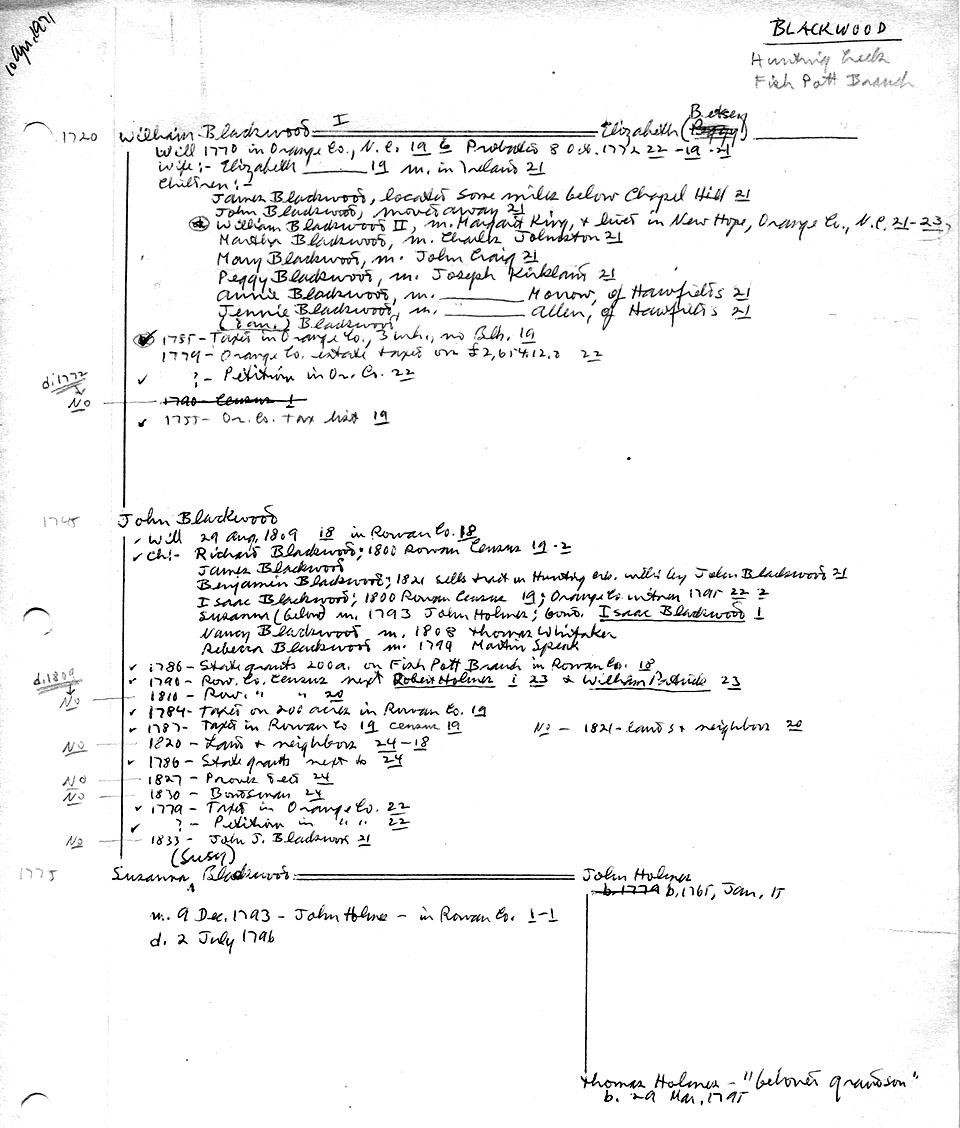 10 Apr. 1971
BLACKWOOD
Hunting Creek
Fish Pott Branch
1720 William Blackwood I Elizabeth (Betsey Peggy)
Will 1770 in Orange Co., N.C. 19 6 Probated 8 Oct. 1772 22-19-21
Wife:- Elizabeth 19 m. in Ireland 21
Children:-
James Blackwood, located some miles below Chapel Hill 21
John Blackwood, moved away 21
William Blackwood II, m. Margaret King, & lived in New Hope, Orange Co., N.C. 21-23,
Martha Blackwood, m. Charles Johnston 21
Mary Blackwood, m. John Craig 21
Peggy Blackwood, m. Joseph Kirkland 21
Annie Blackwood, m. Morrow, of Hawfields 21
Jennie Blackwood, m. Allen, of Hawfields 21
(Sam.) Blackwood
1755- Taxed in Orange Co., 3 wh., no Blk. 19
1779- Orange Co. estate taxed on £2,654.12.0 22
d.1772 ?- Petition in Or. Co. 22
No 1790- Census 1
1755- Or. Co. Tax list 19
1745 John Blackwood
Will 29 Aug. 1809 18 in Rowan Co. 18
Ch:- Richard Blackwood; 1800 Rowan Census 19-2
James Blackwood
Benjamin Blackwood; 1821 sells tract on Hunting crk. willed by John Blackwood 21
Isaac Blackwood; 1800 Rowan Census 19; Orange Co. witness 1795 22 2
Susanna (below) m. 1793 John Holmes; bond. Isaac Blackwood 1
Nancy Blackwood m. 1808 Thomas Whitaker
Rebecca Blackwood m. 1799 Martin Speak
1786- State grants 200a. on Fish Pott Branch in Rowan Co. 18
d.1809 1790- Row. Co. Census next Robert Holmes 1 23 & William Patrick 23
No 1810- Row. " " 20
1784- Taxed on 200 acres in Rowan Co. 19
1787- Taxed in Rowan Co 19 census 19 No - 1821- Lands + neighbors 20
No 1820- Land + neighbors 24-18
1786- State grants next to 24
No 1827- Proves deed 24
No 1830- Bondsman 24
1779- Taxed in Orange Co. 22
?- Petition in " " 22
No 1833- John J. Blackwood 21
(Susy)
1775 Susanna Blackwood John Holmes
b. 1779 b. 1765, Jan. 15
m. 9 Dec. 1793 - John Holmes - in Rowan Co. 1-1
d. 2 July 1796
Thomas Holmes - "beloved grandson"
b. 29 Mar, 1795